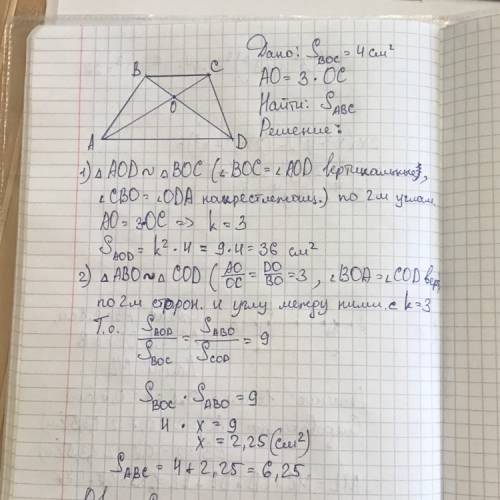 B C
O
A D
Дано: S_BOC = 4 см²
AO = 3 · OC
Найти: S_ABC
Решение:
1) △AOD ~ △BOC (∠BOC = ∠AOD вертикальные,
∠CBO = ∠ODA накрестлежащ.) по 2м углам.
AO = 3OC => k = 3
S_AOD = k² · 4 = 9 · 4 = 36 см²
2) △ABO ~ △COD (AO/OC = DO/BO = 3, ∠BOA = ∠COD верт
по 2м сторон. и углу между ними. с k = 3
Т.о. S_AOD/S_BOC = S_ABO/S_COD = 9
S_BOC · S_ABO = 9
4 · x = 9
x = 2,25 (см²)
S_ABC = 4 + 2,25 = 6,25